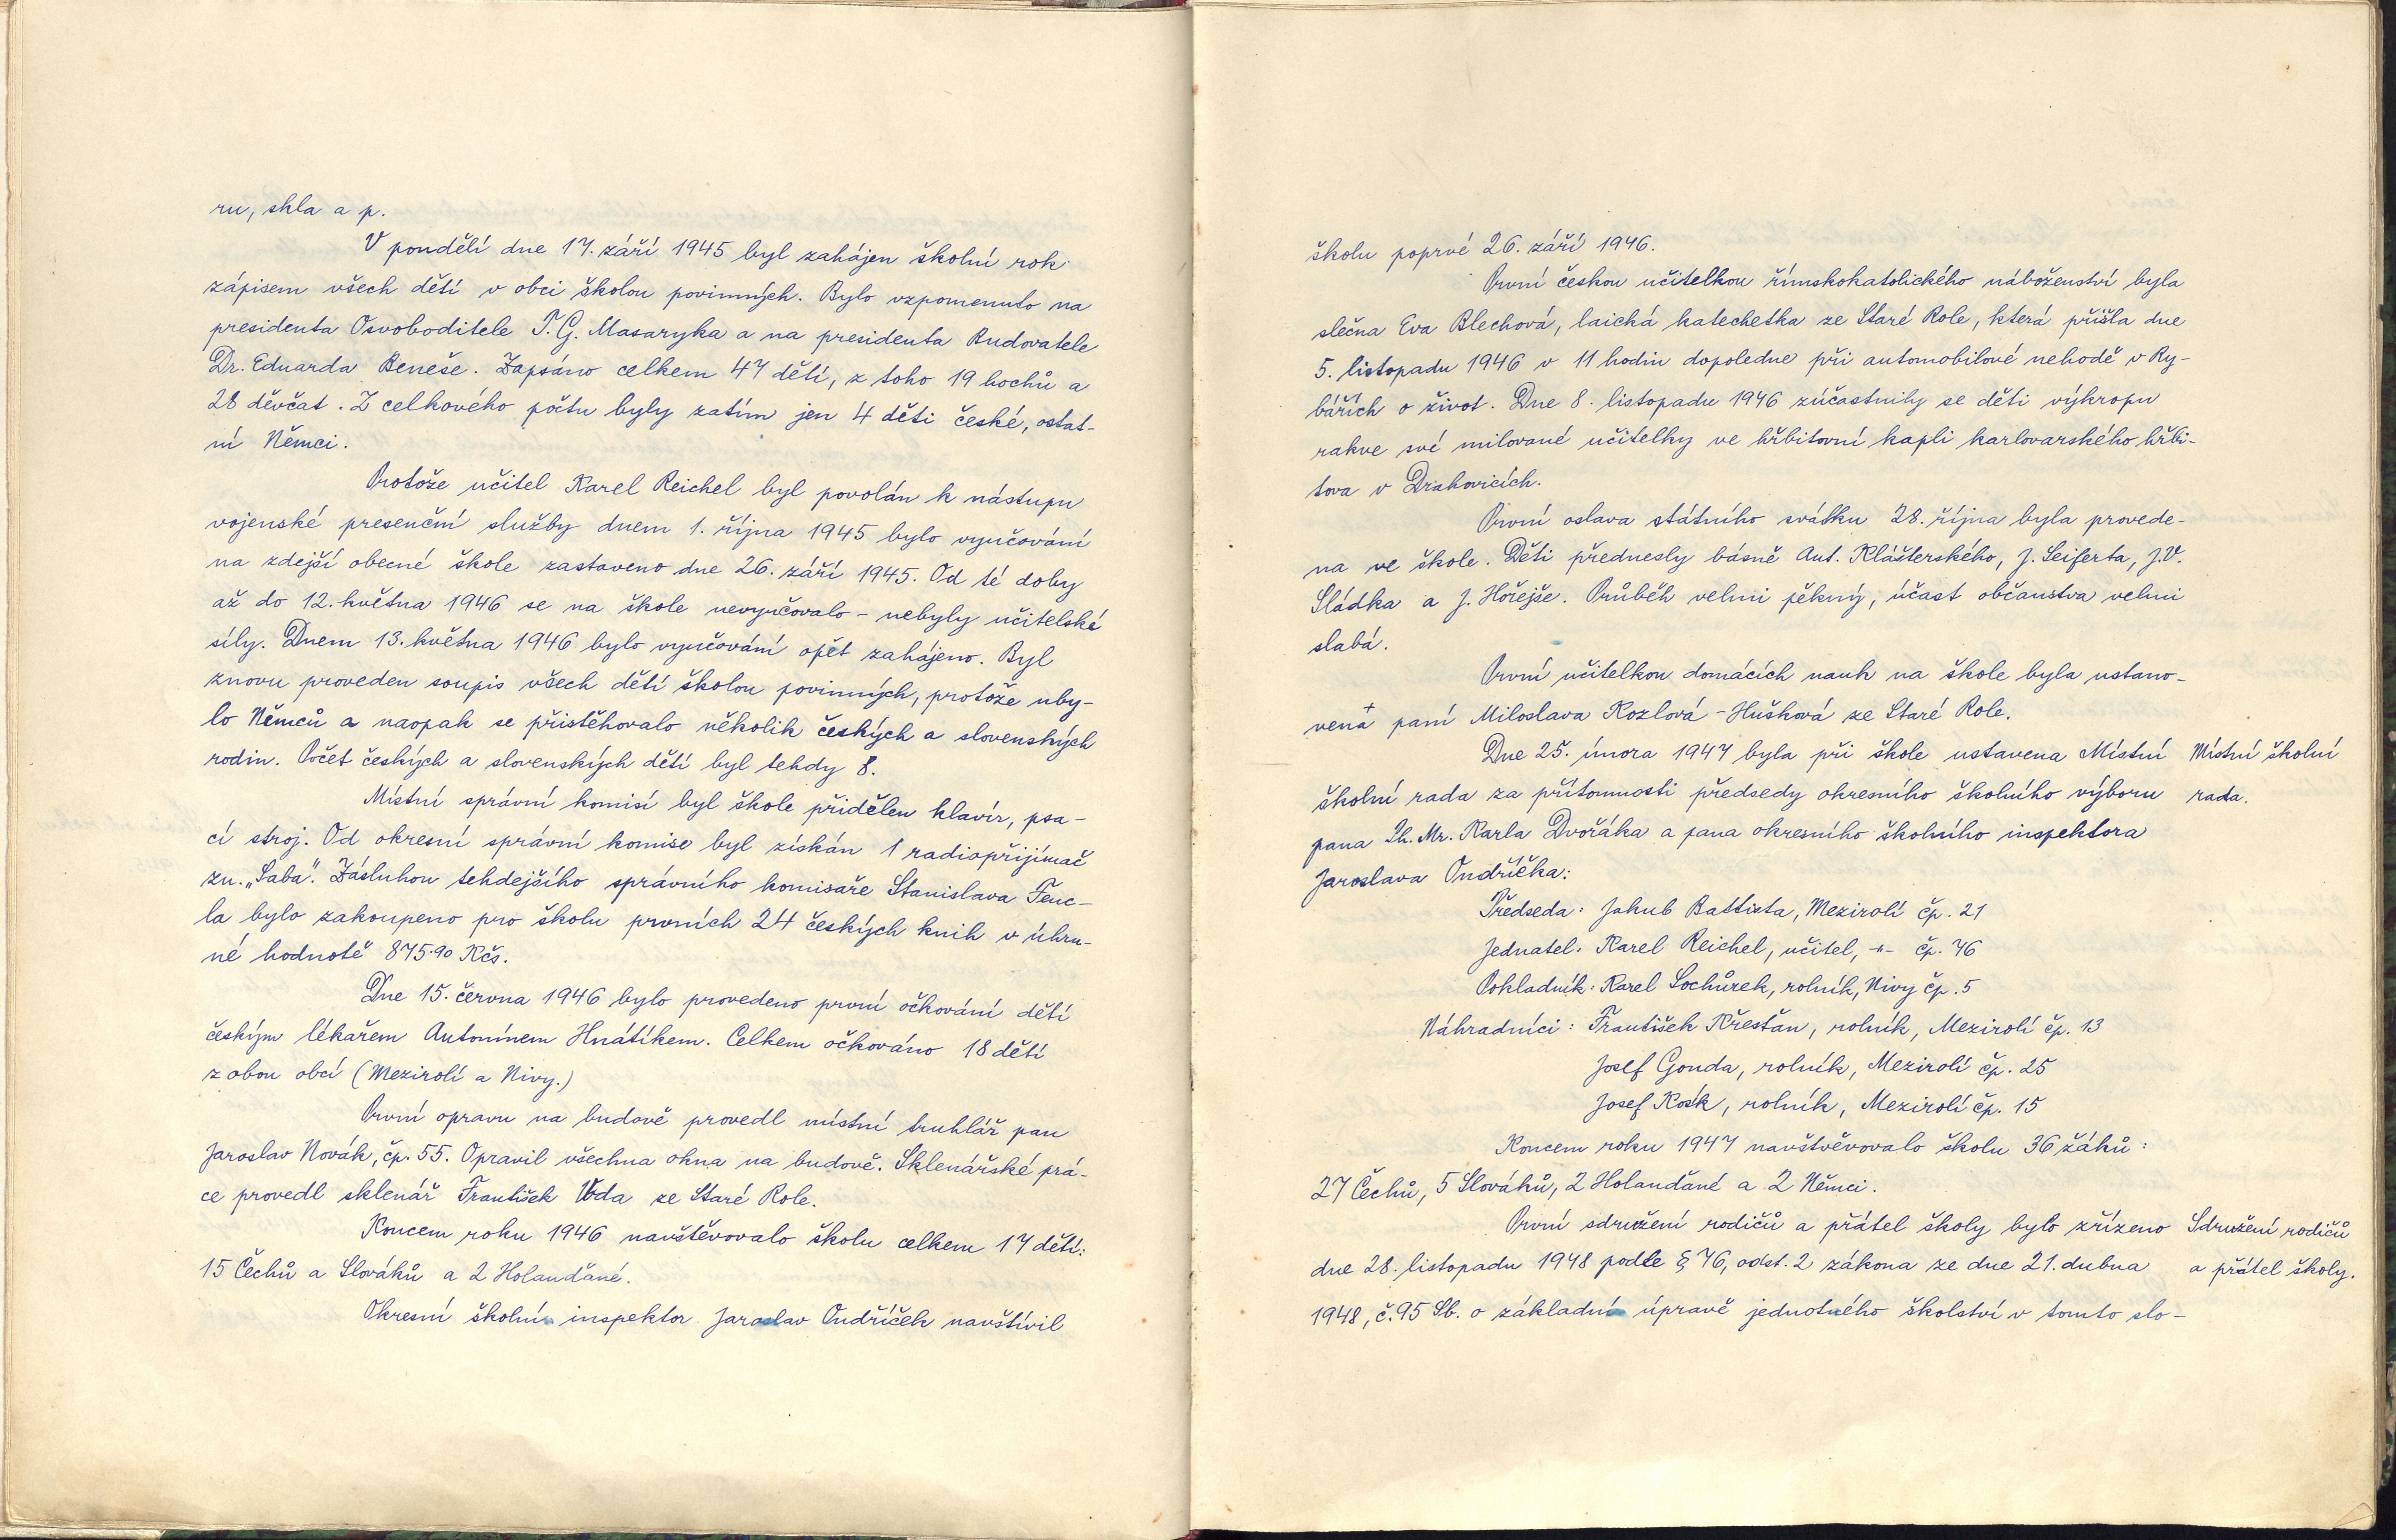 ru, skla a p.
V pondělí dne 17. září 1945 byl zahájen školní rok
zápisem všech dětí v obci školou povinných. Bylo vzpomenuto na
presidenta Osvoboditele T. G. Masaryka a na presidenta Budovatele
Dr. Eduarda Beneše. Zapsáno celkem 47 dětí, z toho 19 hochů a
28 děvčat. Z celkového počtu byly zatím jen 4 děti české, ostat-
ní Němci.
Protože učitel Karel Reichel byl povolán k nástupu
vojenské presenční služby dnem 1. října 1945 bylo vyučování
na zdejší obecné škole zastaveno dne 26. září 1945. Od té doby
až do 12. května 1946 se na škole nevyučovalo - nebyly učitelské
síly. Dnem 13. května 1946 bylo vyučování opět zahájeno. Byl
znovu proveden soupis všech dětí školou povinných, protože uby-
lo Němců a naopak se přistěhovalo několik českých a slovenských
rodin. Počet českých a slovenských dětí byl tehdy 8.
Místní správní komisí byl škole přidělen klavír, psa-
cí stroj. Od okresní správní komise byl získán 1 radiopřijímač
zn. „Saba". Zásluhou tehdejšího správního komisaře Stanislava Fenc-
la bylo zakoupeno pro školu prvních 24 českých knih v úhrn-
né hodnotě 875.90 Kčs.
Dne 15. června 1946 bylo provedeno první očkování dětí
českým lékařem Antonínem Hnátíkem. Celkem očkováno 18 dětí
z obou obcí (Mezirolí a Nivy.)
První opravu na budově provedl místní truhlář pan
Jaroslav Novák, čp. 55. Opravil všechna okna na budově. Sklenářské prá-
ce provedl sklenář František Voda ze Staré Role.
Koncem roku 1946 navštěvovalo školu celkem 17 dětí:
15 Čechů a Slováků a 2 Holanďané.
Okresní školní inspektor Jaroslav Ondříček navštívil
školu poprvé 26. září 1946.
První českou učitelkou římskokatolického náboženství byla
slečna Eva Blechová, laická katechetka ze Staré Role, která přišla dne
5. listopadu 1946 v 11 hodin dopoledne při automobilové nehodě v Ry-
bářích o život. Dne 8. listopadu 1946 zúčastnily se děti výkropu
rakve své milované učitelky ve hřbitovní kapli karlovarského hřbi-
tova v Drahovicích.
První oslava státního svátku 28. října byla provede-
na ve škole. Děti přednesly básně Ant. Klášterského, J. Seiferta, J. V.
Sládka a J. Hořejše. Průběh velmi pěkný, účast občanstva velmi
slabá.
První učitelkou domácích nauk na škole byla ustano-
vena + paní Miloslava Kozlová - Hušková ze Staré Role.
Dne 25. února 1947 byla při škole ustavena Místní Místní školní
školní rada za přítomnosti předsedy okresního školního výboru rada.
pana Ph. Mr. Karla Dvořáka a pana okresního školního inspektora
Jaroslava Ondříčka:
Předseda: Jakub Battista, Mezirolí čp. 21
Jednatel: Karel Reichel, učitel, -"- čp. 76
Pokladník: Karel Sochůrek, rolník, Nivy čp. 5
Náhradníci: František Křesťan, rolník, Mezirolí čp. 13
Josef Gonda, rolník, Mezirolí čp. 25
Josef Kosík, rolník, Mezirolí čp. 15
Koncem roku 1947 navštěvovalo školu 36 žáků:
27 Čechů, 5 Slováků, 2 Holanďané a 2 Němci.
První sdružení rodičů a přátel školy bylo zřízeno Sdružení rodičů
dne 28. listopadu 1948 podle § 76, odst. 2 zákona ze dne 21. dubna a přátel školy.
1948, č. 95 Sb. o základní úpravě jednotného školství v tomto slo-